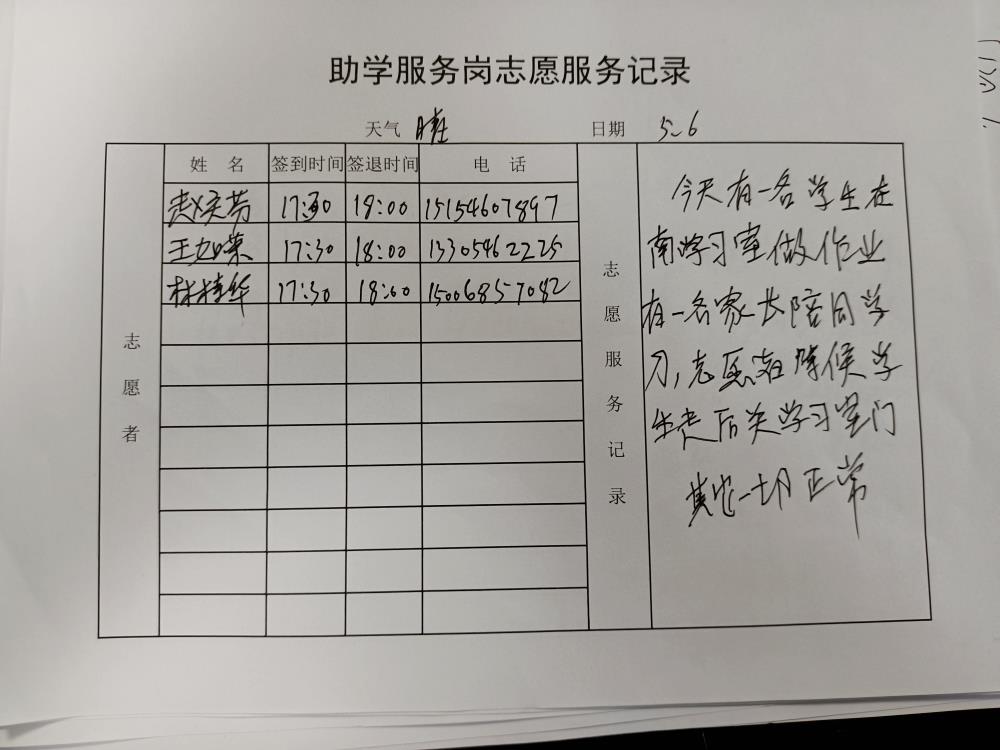 助学服务岗志愿服务记录
天气 晴 日期 5.6
姓 名 签到时间 签退时间 电 话
赵奕芳 17:30 18:00 15154607897
王如荣 17:30 18:00 13305462225
林桂华 17:30 18:00 15006857082
志愿者
志愿服务记录
今天有一名学生在
南学习室做作业
有一名家长陪同学
习,志愿者等候学
生走后关学习室门
其它一切正常